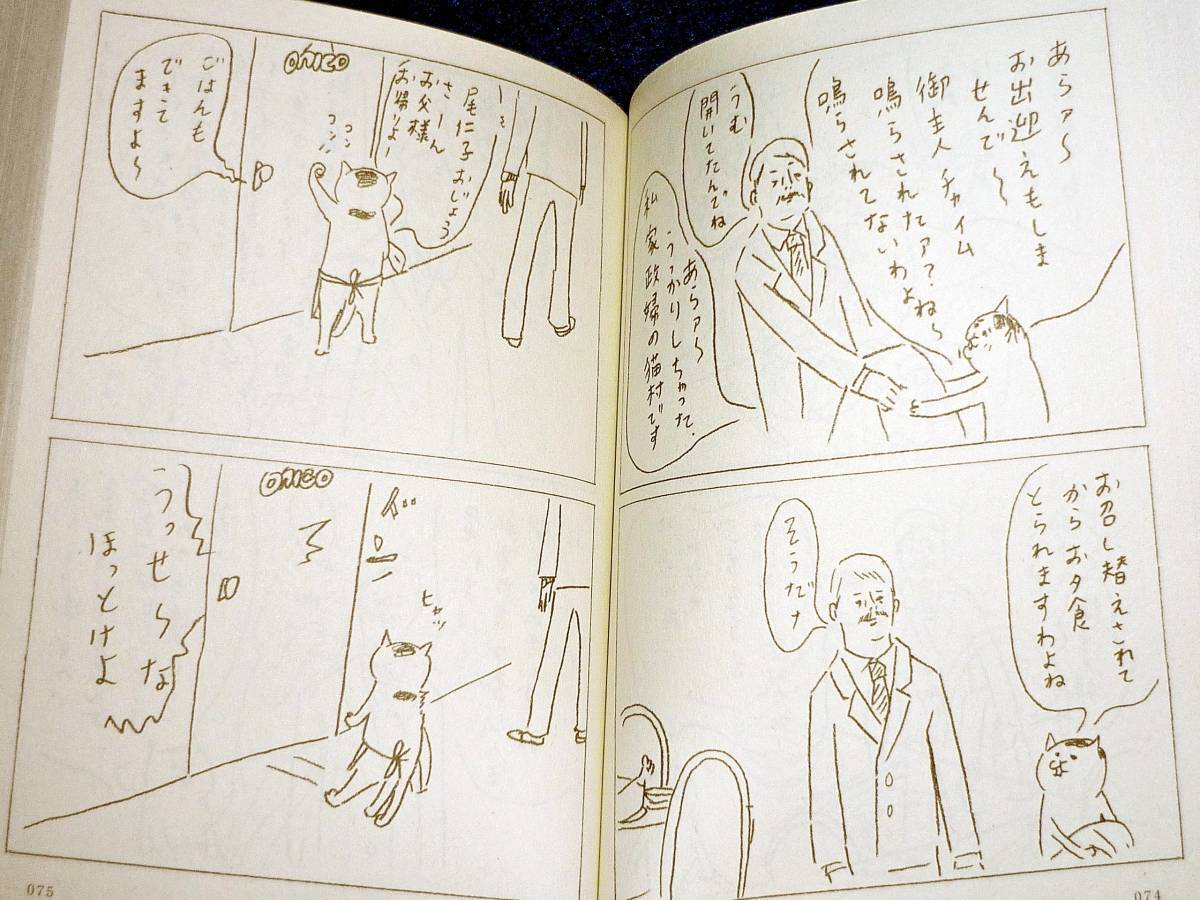 あらァ～
お出迎えもしま
せんで～
御主人チャイム
鳴らされたァ？ね～
鳴らされてないわよ
うむ
開いてたんでね
あらァ～
うっかりしちゃった、
私家政婦の猫村です
お召し替えされて
からお夕食
とられますわよね
そうだナ
074
尾仁子おじょう
さーん
お父様
お帰りよー
コン
コンッ
ONICO
ごはんも
できて
ますよ～
ONICO
ビク
ヒャッ
うっせ～な
ほっとけよ
075